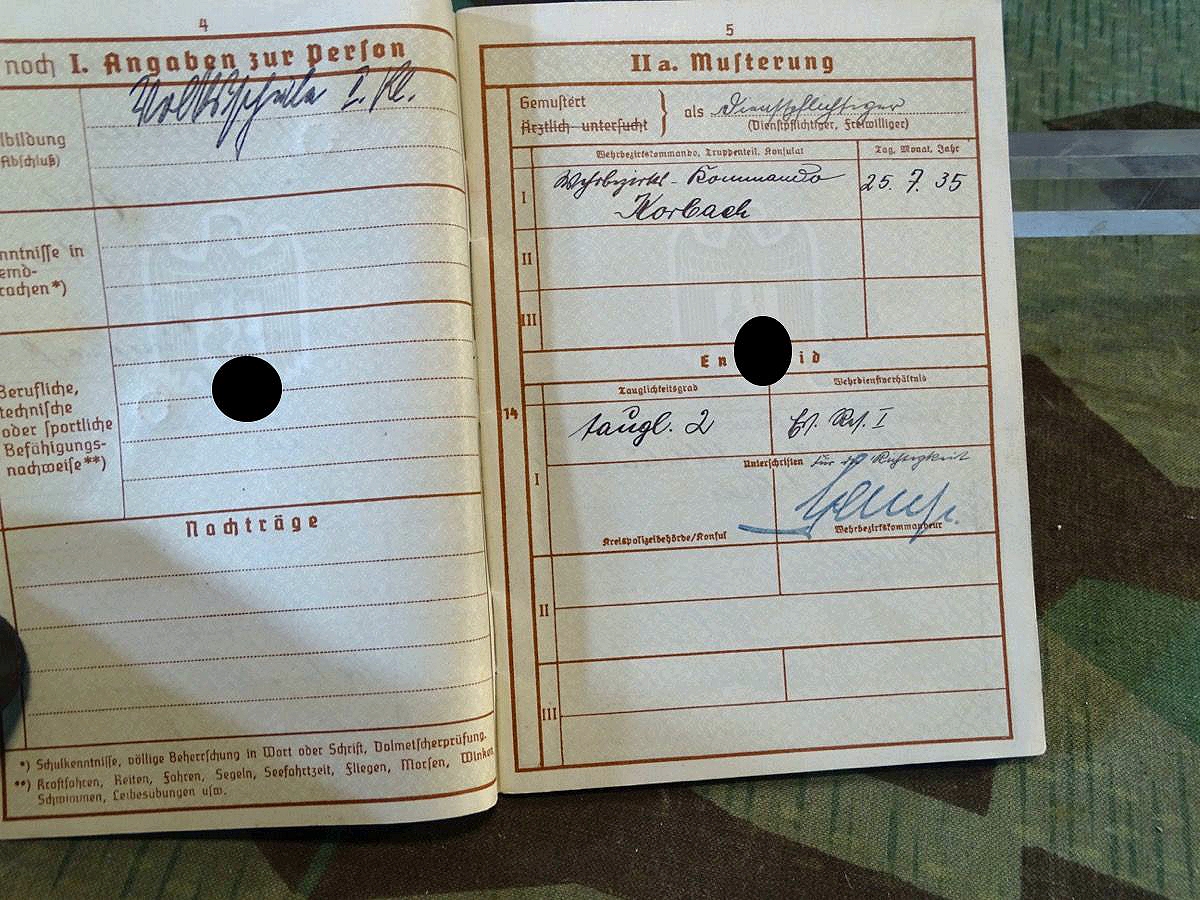 4
noch I. Angaben zur Person
Volksschule 2. Kl.
lbildung
Abschluß)
nntnisse in
emd-
rachen*)
Berufliche,
technische
oder sportliche
Befähigungs-
nachweise**)
Nachträge
*) Schulkenntnisse, völlige Beherrschung in Wort oder Schrift, Dolmetscherprüfung.
**) Kraftfahren, Reiten, Fahren, Segeln, Seefahrtzeit, Fliegen, Morsen, Winken,
Schwimmen, Leibesübungen usw.
5
II a. Musterung
Gemustert
Ärztlich untersucht
als Dienstpflichtiger
(Dienstpflichtiger, Freiwilliger)
Wehrbezirkskommando, Truppenteil, Konsulat
Tag, Monat, Jahr
I
Wehrbezirks-Kommando
Korbach
25. 7. 35
II
III
En id
14
Tauglichkeitsgrad
Wehrdienstverhältnis
taugl. 2
Ers. Res. I
I
Unterschriften für die Richtigkeit
Kreispolizeibehörde/Konsul
Wehrbezirkskommandeur
II
III